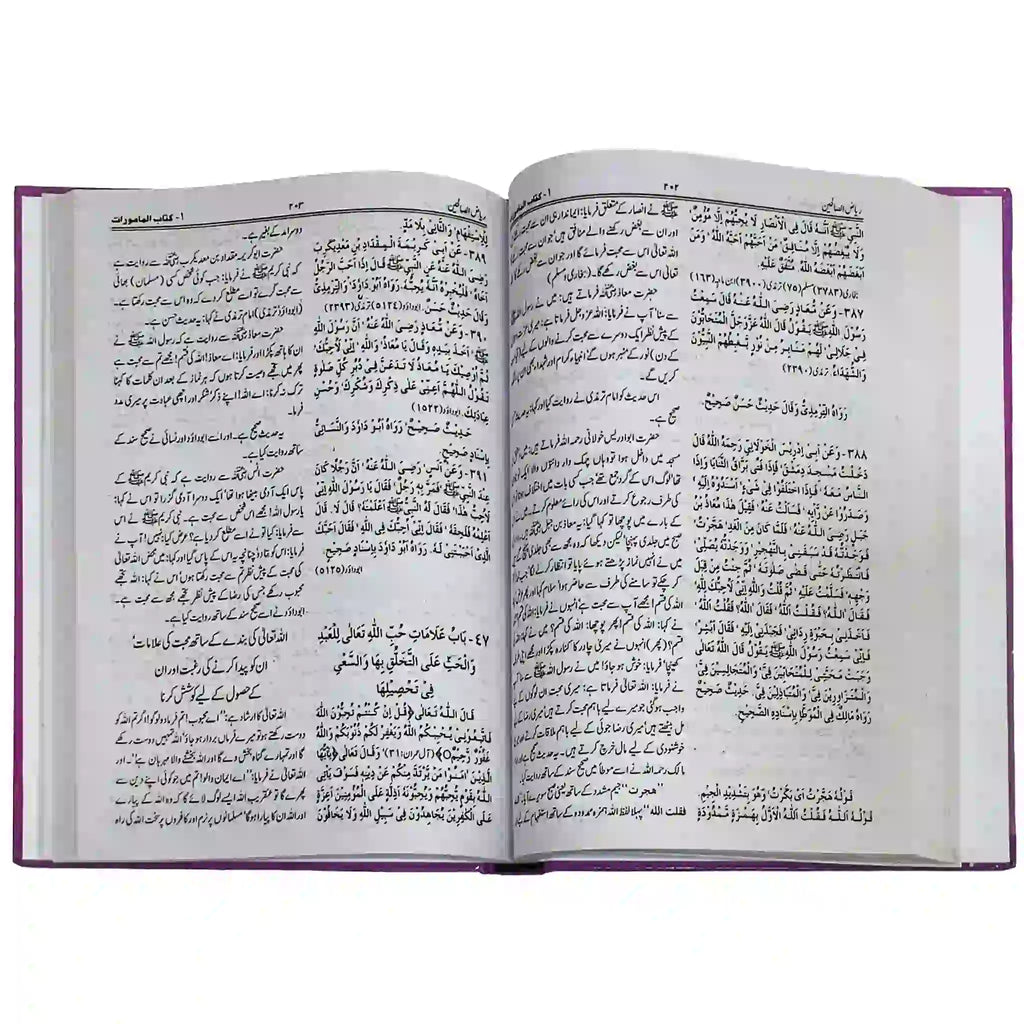 رياض الصالحين
٢٠٢
١- كتاب المامورات
النَّبِيِّ ﷺ أَنَّهُ قَالَ فِي الْأَنْصَارِ لَا يُحِبُّهُمْ إِلَّا مُؤْمِنٌ
وَلَا يُبْغِضُهُمْ إِلَّا مُنَافِقٌ' مَنْ أَحَبَّهُمْ أَحَبَّهُ اللَّهُ' وَمَنْ
أَبْغَضَهُمْ أَبْغَضَهُ اللَّهُ مُتَّفَقٌ عَلَيْهِ
بخاری (٣٧٨٣) مسلم (٧٥) ترمذی (٣٩٠٠) ابن ماجہ (١٦٣)
٣٨٧- وَعَنْ مُعَاذٍ رَضِيَ اللَّهُ عَنْهُ قَالَ سَمِعْتُ
رَسُولَ اللَّهِ ﷺ يَقُولُ قَالَ اللَّهُ عَزَّوَجَلَّ الْمُتَحَابُّونَ
فِي جَلَالِي' لَهُمْ مَنَابِرُ مِنْ نُورٍ يَغْبِطُهُمُ النَّبِيُّونَ
وَالشُّهَدَاءُ. ترمذی (٢٣٩٠)
رَوَاهُ التِّرْمِذِيُّ وَقَالَ حَدِيثٌ حَسَنٌ صَحِيحٌ.
٣٨٨- وَعَنْ أَبِي إِدْرِيسَ الْخَوْلَانِيِّ رَحِمَهُ اللَّهُ قَالَ
دَخَلْتُ مَسْجِدَ دِمَشْقَ' فَإِذَا فَتًى بَرَّاقُ الثَّنَايَا وَإِذَا
النَّاسُ مَعَهُ' فَإِذَا اخْتَلَفُوا فِي شَيْءٍ' أَسْنَدُوهُ إِلَيْهِ'
وَصَدَرُوا عَنْ رَأْيِهِ' فَسَأَلْتُ عَنْهُ' فَقِيلَ هَذَا مُعَاذُ بْنُ
جَبَلٍ رَضِيَ اللَّهُ عَنْهُ' فَلَمَّا كَانَ مِنَ الْغَدِ' هَجَّرْتُ'
فَوَجَدْتُهُ قَدْ سَبَقَنِي بِالتَّهْجِيرِ' وَوَجَدْتُهُ يُصَلِّي'
فَانْتَظَرْتُهُ حَتَّى قَضَى صَلٰوتَهُ' ثُمَّ جِئْتُ مِنْ قِبَلِ
وَجْهِهِ' فَسَلَّمْتُ عَلَيْهِ' ثُمَّ قُلْتُ وَاللَّهِ إِنِّي لَأُحِبُّكَ لِلَّهِ'
فَقَالَ' آللَّهِ؟ فَقُلْتُ اللَّهِ' فَقَالَ' آللَّهِ؟ فَقُلْتُ اللَّهِ'
فَأَخَذَنِي بِحَبْوَةِ رِدَائِي' فَجَبَذَنِي إِلَيْهِ' فَقَالَ' أَبْشِرْ'
فَإِنِّي سَمِعْتُ رَسُولَ اللَّهِ ﷺ يَقُولُ قَالَ اللَّهُ تَعَالَى
وَجَبَتْ مَحَبَّتِي لِلْمُتَحَابِّينَ فِيَّ' وَالْمُتَجَالِسِينَ فِيَّ'
وَالْمُتَزَاوِرِينَ فِيَّ' وَالْمُتَبَاذِلِينَ فِيَّ. حَدِيثٌ صَحِيحٌ
رَوَاهُ مَالِكٌ فِي الْمُوَطَّأِ بِإِسْنَادِهِ الصَّحِيحِ.
قَوْلُهُ هَجَّرْتُ أَيْ بَكَّرْتُ' وَهُوَ بِتَشْدِيدِ الْجِيمِ.
قَوْلُهُ آللَّهِ فَقُلْتُ اللَّهِ الْأَوَّلُ بِهَمْزَةٍ مَمْدُودَةٍ
ﷺ نے انصار کے متعلق فرمایا: ایمانداری ان سے
اور ان سے بغض رکھنے والے منافق ہیں جو ان سے
تعالٰی اس سے محبت فرمائے گا اور جو ان سے بغض رکھے گا
تعالٰی اس سے بغض رکھے گا۔ (بخاری و مسلم)
حضرت معاذ رضی اللہ عنہ فرماتے ہیں: میں نے رسول
سے سنا' آپ نے فرمایا: اللہ عزوجل فرماتا ہے: میری
کے پیش نظر ایک دوسرے سے محبت کرنے والوں کے
کے دن) نور کے منبر ہوں گے' انبیاء کرام اور شہداء بھی ان پر
کریں گے۔
اس حدیث کو امام ترمذی نے روایت کیا اور کہا: یہ حدیث
صحیح ہے۔
حضرت ابوادریس خولانی رحمہ اللہ فرماتے ہیں: میں
مسجد میں داخل ہوا تو وہاں چمک دار دانتوں والا ایک
تھا' لوگ اس کے گرد جمع تھے جب کسی بات میں اختلاف
کی طرف رجوع کرتے اور اس کی رائے معلوم کرتے میں نے
کے بارے میں پوچھا تو کہا گیا: یہ معاذ بن جبل رضی اللہ عنہ ہیں
صبح میں جلدی پہنچا لیکن دیکھا کہ وہ مجھ سے بھی جلدی
میں نے انہیں نماز پڑھتے ہوئے پایا تو انتظار کرنے لگا جب
کر چکے تو سامنے کی طرف سے حاضر ہوا' سلام کہا اور
اللہ کی قسم! مجھے آپ سے محبت ہے' انہوں نے فرمایا:
نے کہا: اللہ کی قسم! پھر پوچھا: اللہ کی قسم؟ میں نے کہا
قسم؟ (پھر) انہوں نے میری چادر کا کنارہ پکڑا اور مجھے
کھینچا' فرمایا: خوش ہو جاؤ! میں نے رسول اللہ ﷺ سے
نے فرمایا: اللہ تعالٰی فرماتا ہے: میری محبت ان لوگوں کے
واجب ہو گئی جو میرے لیے باہم محبت کرتے ہیں' میری رضا
مل بیٹھتے ہیں' میری رضا جوئی کے لیے باہم ملاقات کرتے اور
خوشنودی کے لیے مال خرچ کرتے ہیں۔ یہ حدیث صحیح ہے
مالک رحمہ اللہ نے اسے موطا میں صحیح سند کے ساتھ روایت کیا
"ھجرت" جیم مشدد کے ساتھ یعنی صبح سویرے آیا
فقلت اللہ" پہلا لفظ اللہ ہمزہ ممدودہ کے ساتھ استفہام کے لیے
رياض الصالحين
٢٠٣
١- كتاب المامورات
لِلْاِسْتِفْهَامِ' وَالثَّانِي بِلَا مَدٍّ.
٣٨٩- عَنْ أَبِي كَرِيمَةَ الْمِقْدَادِ بْنِ مَعْدِيكَرِبَ
رَضِيَ اللَّهُ عَنْهُ عَنِ النَّبِيِّ ﷺ قَالَ إِذَا أَحَبَّ الرَّجُلُ
أَخَاهُ' فَلْيُخْبِرْهُ أَنَّهُ يُحِبُّهُ. رَوَاهُ أَبُو دَاوُدَ' وَالتِّرْمِذِيُّ
وَقَالَ حَدِيثٌ حَسَنٌ. ابوداؤد (٥١٢٤) ترمذی (٢٣٩٣)
٣٩٠- وَعَنْ مُعَاذٍ رَضِيَ اللَّهُ عَنْهُ' أَنَّ رَسُولَ اللَّهِ
ﷺ' أَخَذَ بِيَدِهِ وَقَالَ يَا مُعَاذُ وَاللَّهِ' إِنِّي لَأُحِبُّكَ'
ثُمَّ أُوصِيكَ يَا مُعَاذُ لَا تَدَعَنَّ فِي دُبُرِ كُلِّ صَلٰوةٍ
تَقُولُ اللَّهُمَّ أَعِنِّي عَلَى ذِكْرِكَ وَشُكْرِكَ' وَحُسْنِ
عِبَادَتِكَ. ابوداؤد (١٥٢٢)
حَدِيثٌ صَحِيحٌ' رَوَاهُ أَبُو دَاوُدَ وَالنَّسَائِيُّ
بِإِسْنَادٍ صَحِيحٍ.
٣٩١- وَعَنْ أَنَسٍ' رَضِيَ اللَّهُ عَنْهُ' أَنَّ رَجُلًا كَانَ
عِنْدَ النَّبِيِّ ﷺ' فَمَرَّ بِهِ رَجُلٌ' فَقَالَ يَا رَسُولَ اللَّهِ إِنِّي
لَأُحِبُّ هَذَا' فَقَالَ لَهُ النَّبِيُّ ﷺ أَأَعْلَمْتَهُ؟ قَالَ لَا. قَالَ
أَعْلِمْهُ فَلَحِقَهُ' فَقَالَ إِنِّي أُحِبُّكَ فِي اللَّهِ' فَقَالَ أَحَبَّكَ
الَّذِي أَحْبَبْتَنِي لَهُ. رَوَاهُ أَبُو دَاوُدَ بِإِسْنَادٍ صَحِيحٍ.
ابوداؤد (٥١٢٥)
٤٧- بَابُ عَلَامَاتِ حُبِّ اللَّهِ تَعَالَى لِلْعَبْدِ
وَالْحَثِّ عَلَى التَّخَلُّقِ بِهَا وَالسَّعْيِ
فِي تَحْصِيلِهَا
قَالَ اللَّهُ تَعَالَى ﴿قُلْ إِنْ كُنْتُمْ تُحِبُّونَ اللَّهَ
فَاتَّبِعُونِي يُحْبِبْكُمُ اللَّهُ وَيَغْفِرْ لَكُمْ ذُنُوبَكُمْ وَاللَّهُ
غَفُورٌ رَّحِيمٌ﴾ (آل عمران: ٣١)' وَقَالَ تَعَالَى ﴿يَا أَيُّهَا
الَّذِينَ آمَنُوا مَنْ يَرْتَدَّ مِنْكُمْ عَنْ دِينِهِ فَسَوْفَ يَأْتِي
اللَّهُ بِقَوْمٍ يُحِبُّهُمْ وَيُحِبُّونَهُ أَذِلَّةٍ عَلَى الْمُؤْمِنِينَ أَعِزَّةٍ
عَلَى الْكَافِرِينَ يُجَاهِدُونَ فِي سَبِيلِ اللَّهِ وَلَا يَخَافُونَ
دوسرا مد کے بغیر ہے۔
حضرت ابوکریمہ مقداد بن معدیکرب رضی اللہ عنہ سے روایت ہے
کہ نبی کریم ﷺ نے فرمایا: جب کوئی شخص کسی (مسلمان) بھائی
سے محبت کرے تو اسے مطلع کر دے کہ وہ اس سے محبت رکھتا ہے۔
(ابوداؤد ترمذی) امام ترمذی نے کہا: یہ حدیث حسن ہے۔
حضرت معاذ رضی اللہ عنہ سے روایت ہے کہ رسول اللہ ﷺ نے
ان کا ہاتھ پکڑا اور فرمایا: اے معاذ! اللہ کی قسم! مجھے تم سے محبت ہے
پھر میں تجھے وصیت کرتا ہوں کہ ہر نماز کے بعد ان کلمات کا کہنا
ترک نہ کرنا: اے اللہ! اپنے ذکر' شکر اور اچھی عبادت پر میری مدد
فرما۔
یہ حدیث صحیح ہے۔ اور اسے ابوداؤد اور نسائی نے صحیح سند کے
ساتھ روایت کیا ہے۔
حضرت انس رضی اللہ عنہ سے روایت ہے کہ نبی کریم ﷺ کے
پاس ایک آدمی بیٹھا ہوا تھا' ایک دوسرا آدمی گزرا تو اس نے کہا:
یارسول اللہ! مجھے اس شخص سے محبت ہے۔ نبی کریم ﷺ نے اس
سے فرمایا: کیا تو نے اسے مطلع کر دیا ہے؟ عرض کیا: نہیں! آپ نے
فرمایا: اس کو بتا دو چنانچہ یہ اس کے پاس گیا اور کہا: میں محض اللہ تعالٰی
کی محبت کے پیش نظر تم سے محبت رکھتا ہوں' اس نے کہا: اللہ تجھے
محبوب رکھے جس کی رضا کے پیش نظر تجھے مجھ سے محبت ہے۔
ابوداؤد نے اسے صحیح سند کے ساتھ روایت کیا ہے۔
اللہ تعالٰی کی بندے کے ساتھ محبت کی علامات'
ان کو پیدا کرنے کی رغبت اور ان
کے حصول کے لیے کوشش کرنا
اللہ تعالٰی کا ارشاد ہے: "اے محبوب! تم فرما دو لوگو! اگر تم اللہ کو
دوست رکھتے ہو تو میرے فرماں بردار ہو جاؤ' اللہ تمہیں دوست رکھے
گا اور تمہارے گناہ بخش دے گا' اور اللہ بخشنے والا مہربان ہے"۔ اور
اللہ تعالٰی نے فرمایا: "اے ایمان والو! تم میں جو کوئی اپنے دین سے
پھرے گا تو عنقریب اللہ ایسے لوگ لائے گا کہ وہ اللہ کے پیارے
اور اللہ ان کا پیارا ہو گا' مسلمانوں پر نرم اور کافروں پر سخت' اللہ کی راہ